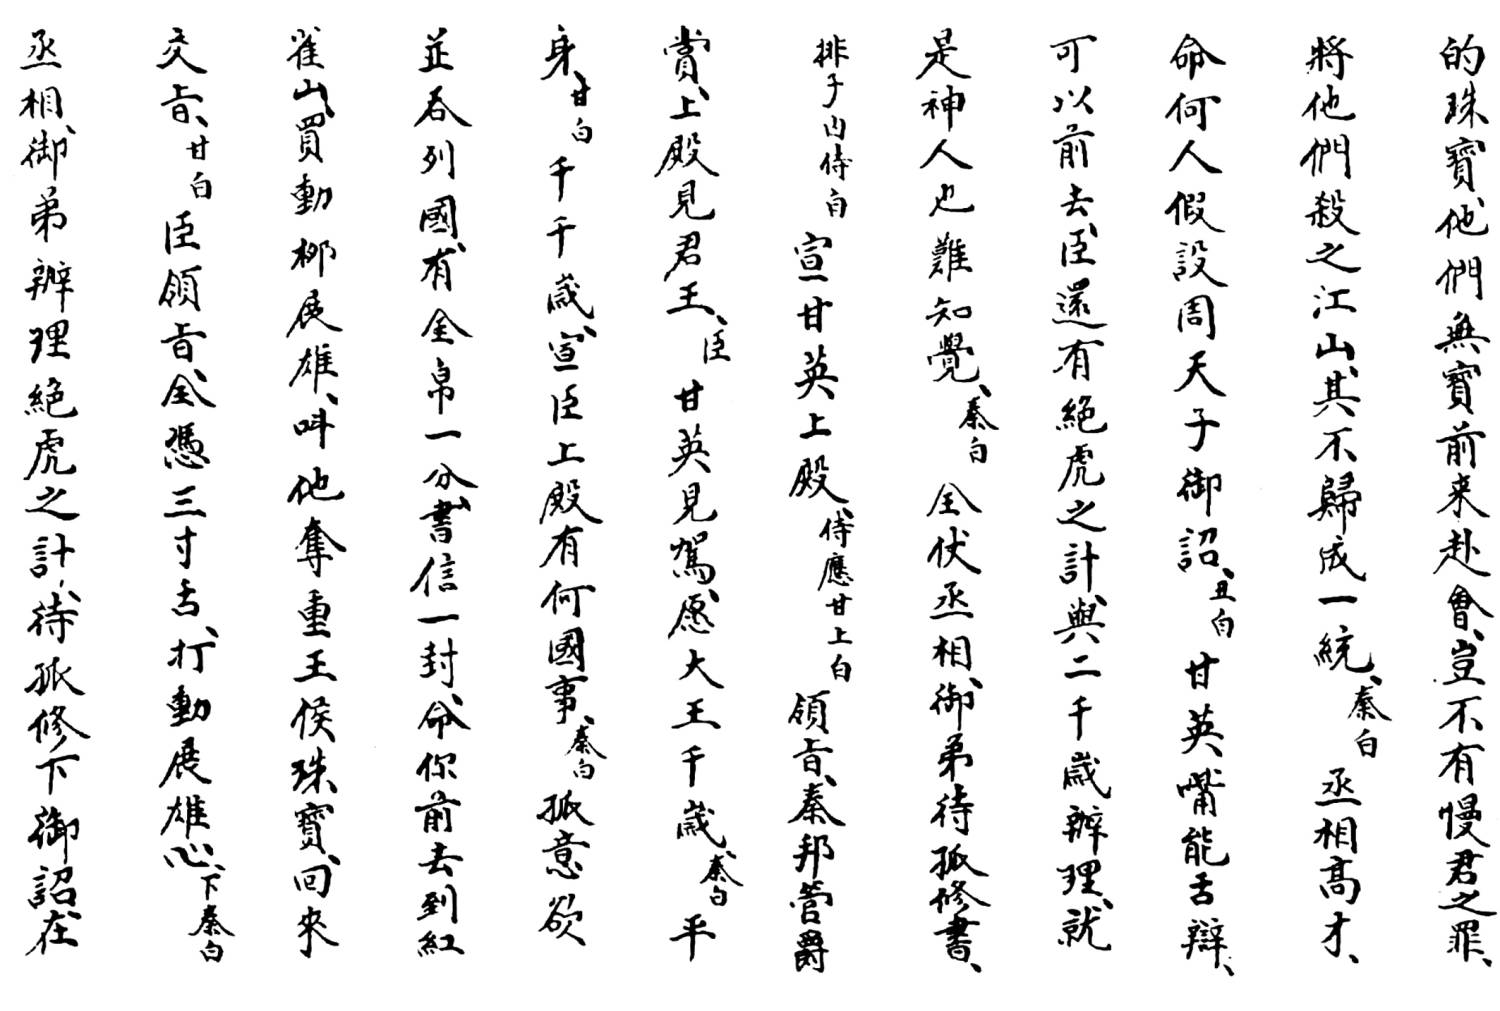 的珠寶、他們無寶前来赴會、豈不有慢君之罪、
將他們殺之江山、其不歸成一統、秦白 丞相高才、
命何人假設周天子御詔、丑白 甘英嘴能舌辯、
可以前去、臣還有絕虎之計、與二千歲辦理、就
是神人也難知覺、秦白 全伏丞相、御弟待孤修書、
排子内侍白 宣甘英上殿、侍應甘上白 領旨、秦邦管爵
賞、上殿見君王、臣甘英見駕、愿大王千歲、秦白 平
身、甘白 千千歲、宣臣上殿有何國事、秦白 孤意欲
並吞列國、有金帛一分、書信一封、命你前去到紅
雀山、買動柳展雄、叫他奪重王侯珠寶、回來
交旨、甘白 臣領旨、全憑三寸舌、打動展雄心、下秦白
丞相、御弟辦理絕虎之計、待孤修下御詔、在